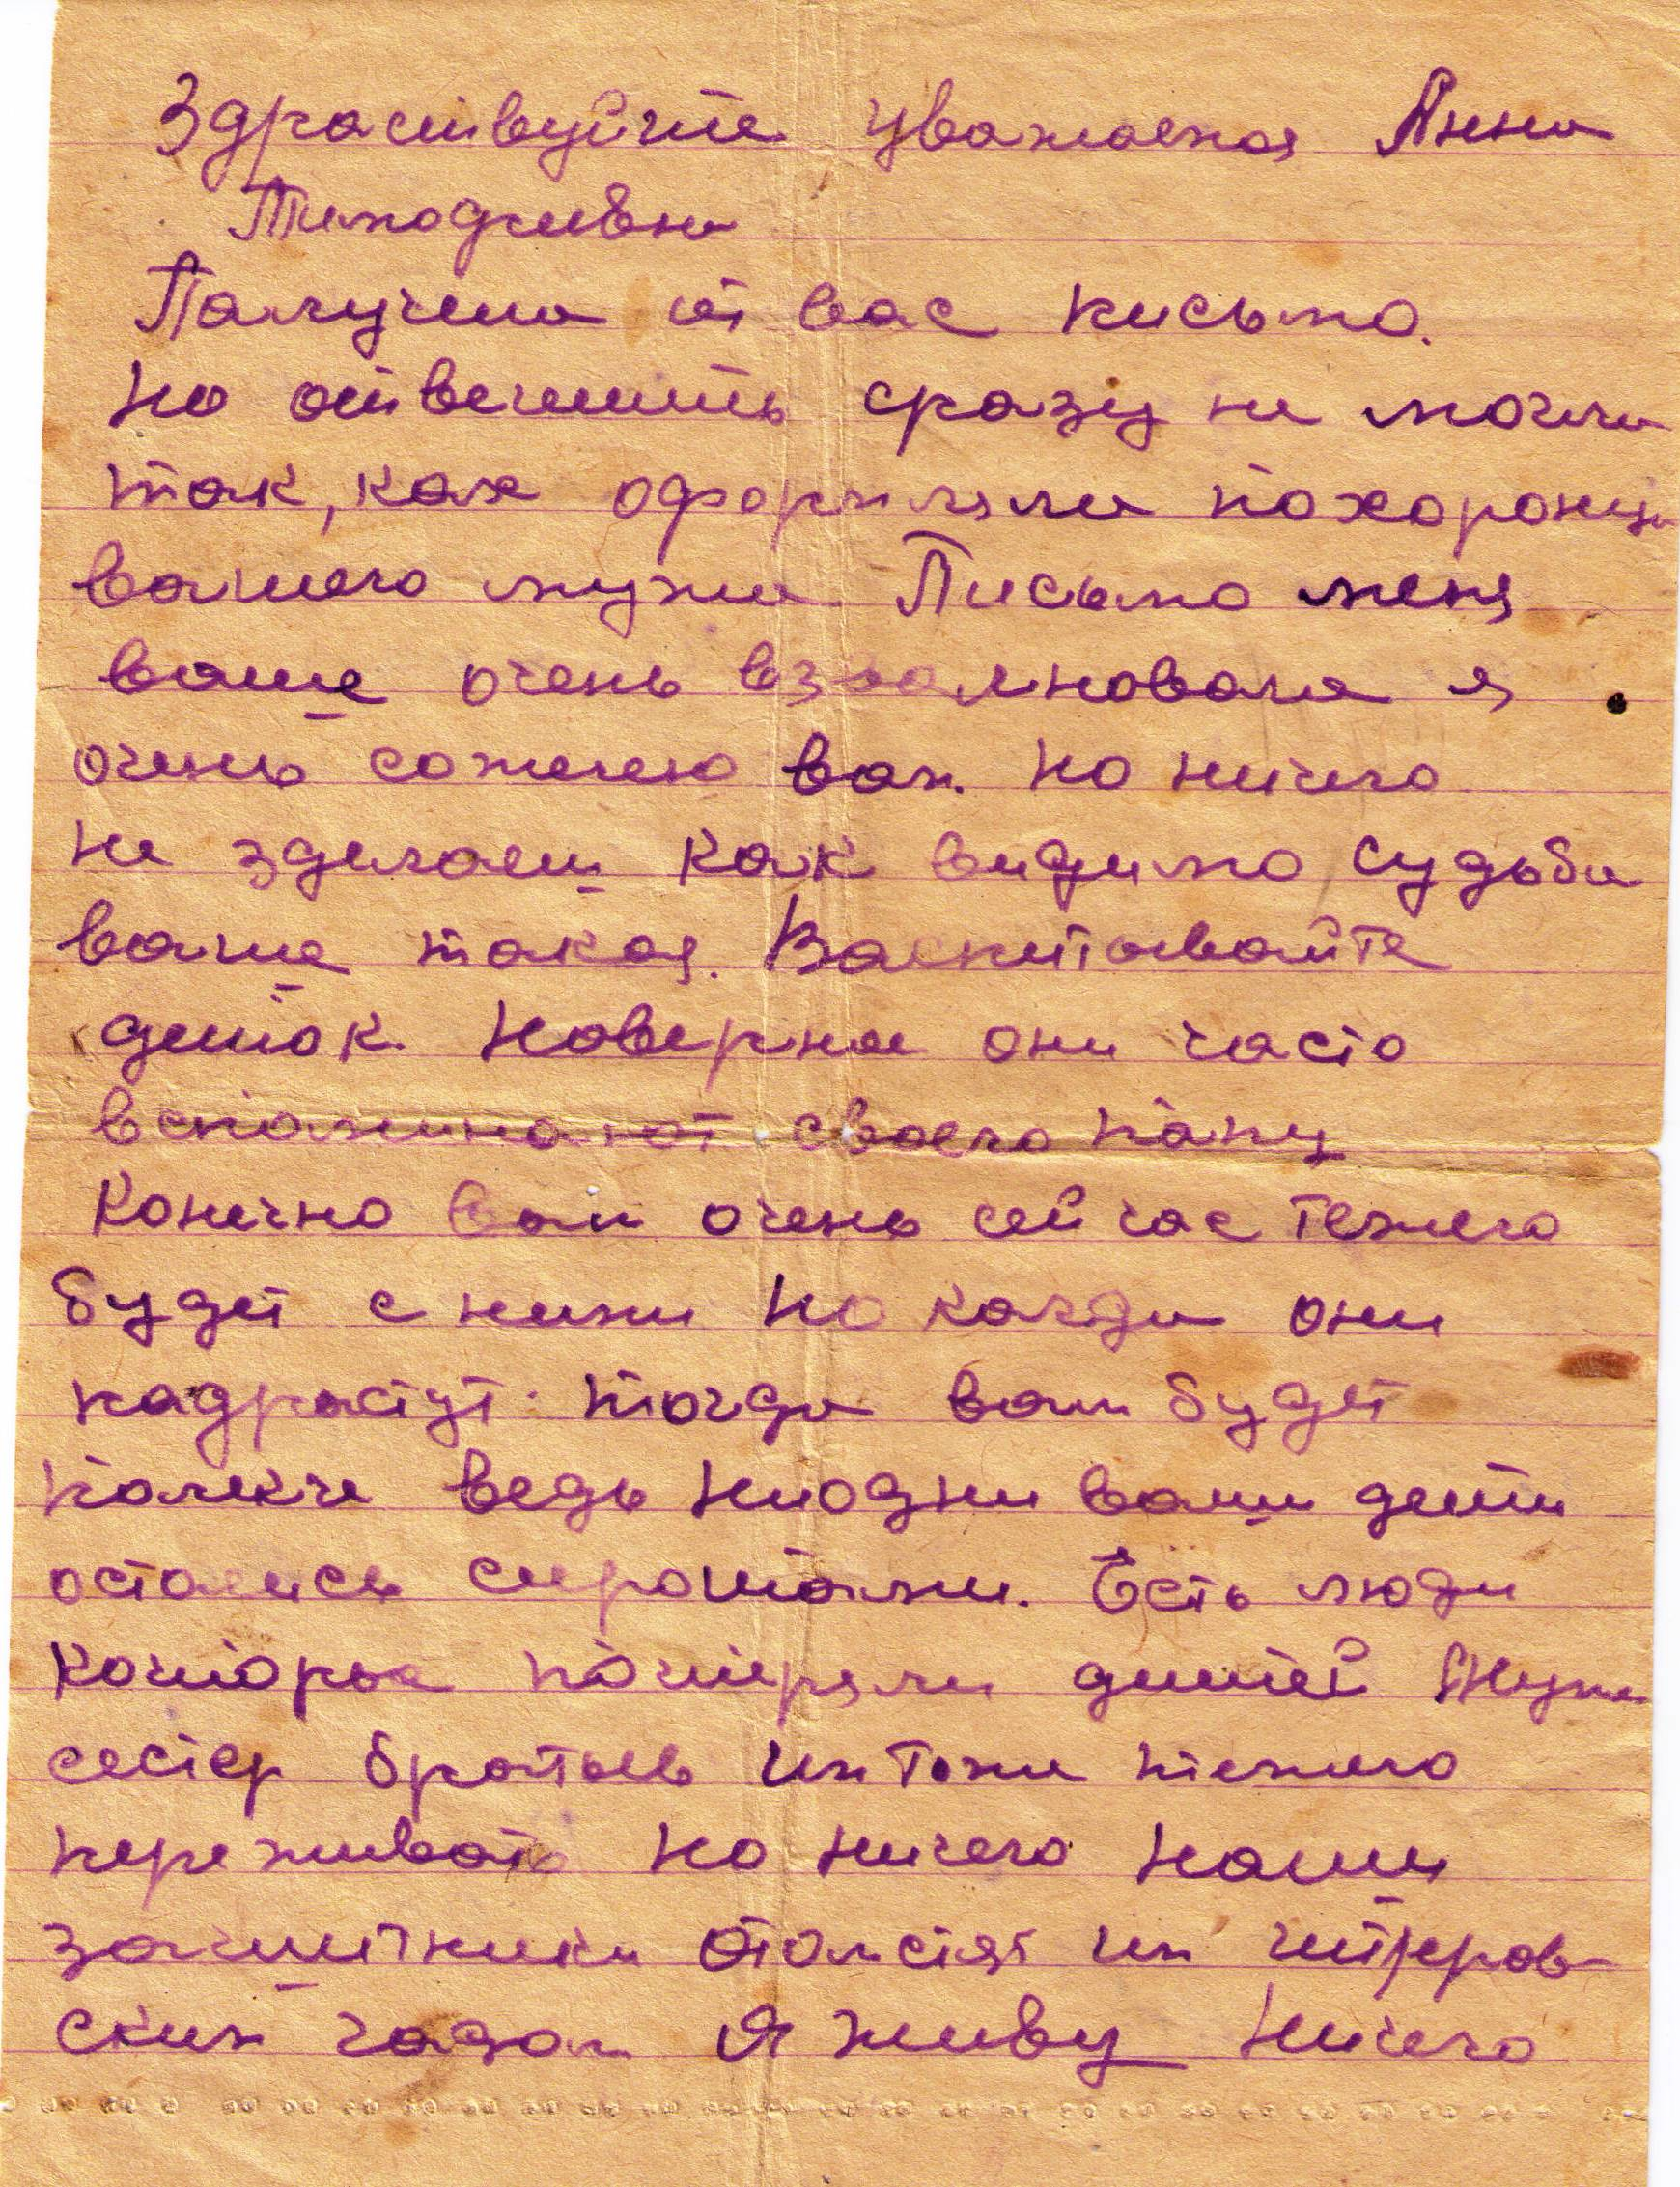 Здраствуйте уважаемая Анна
Получила от вас письмо.
Но ответить сразу не могли
так, как оформляли похороны
вашего мужа. Письмо меня
ваше очень взволновала я
очень сожелею вам. Но ничего
не зделаеш как видимо судьба
ваша такая. Васпитывайте
деток. Наверное они часто
вспоминают своего папу
Конечно вам очень сейчас тежело
будет с ними но когда они
падрастут. тогда вам будет
полекче ведь ниодни ваши дети
остались сиротами. Есть люди
которые потеряли детей мужа
сестер братьев им тоже тежело
переживать но ничего наши
защитники отомстят им гитров-
ским гадам Я живу ничего